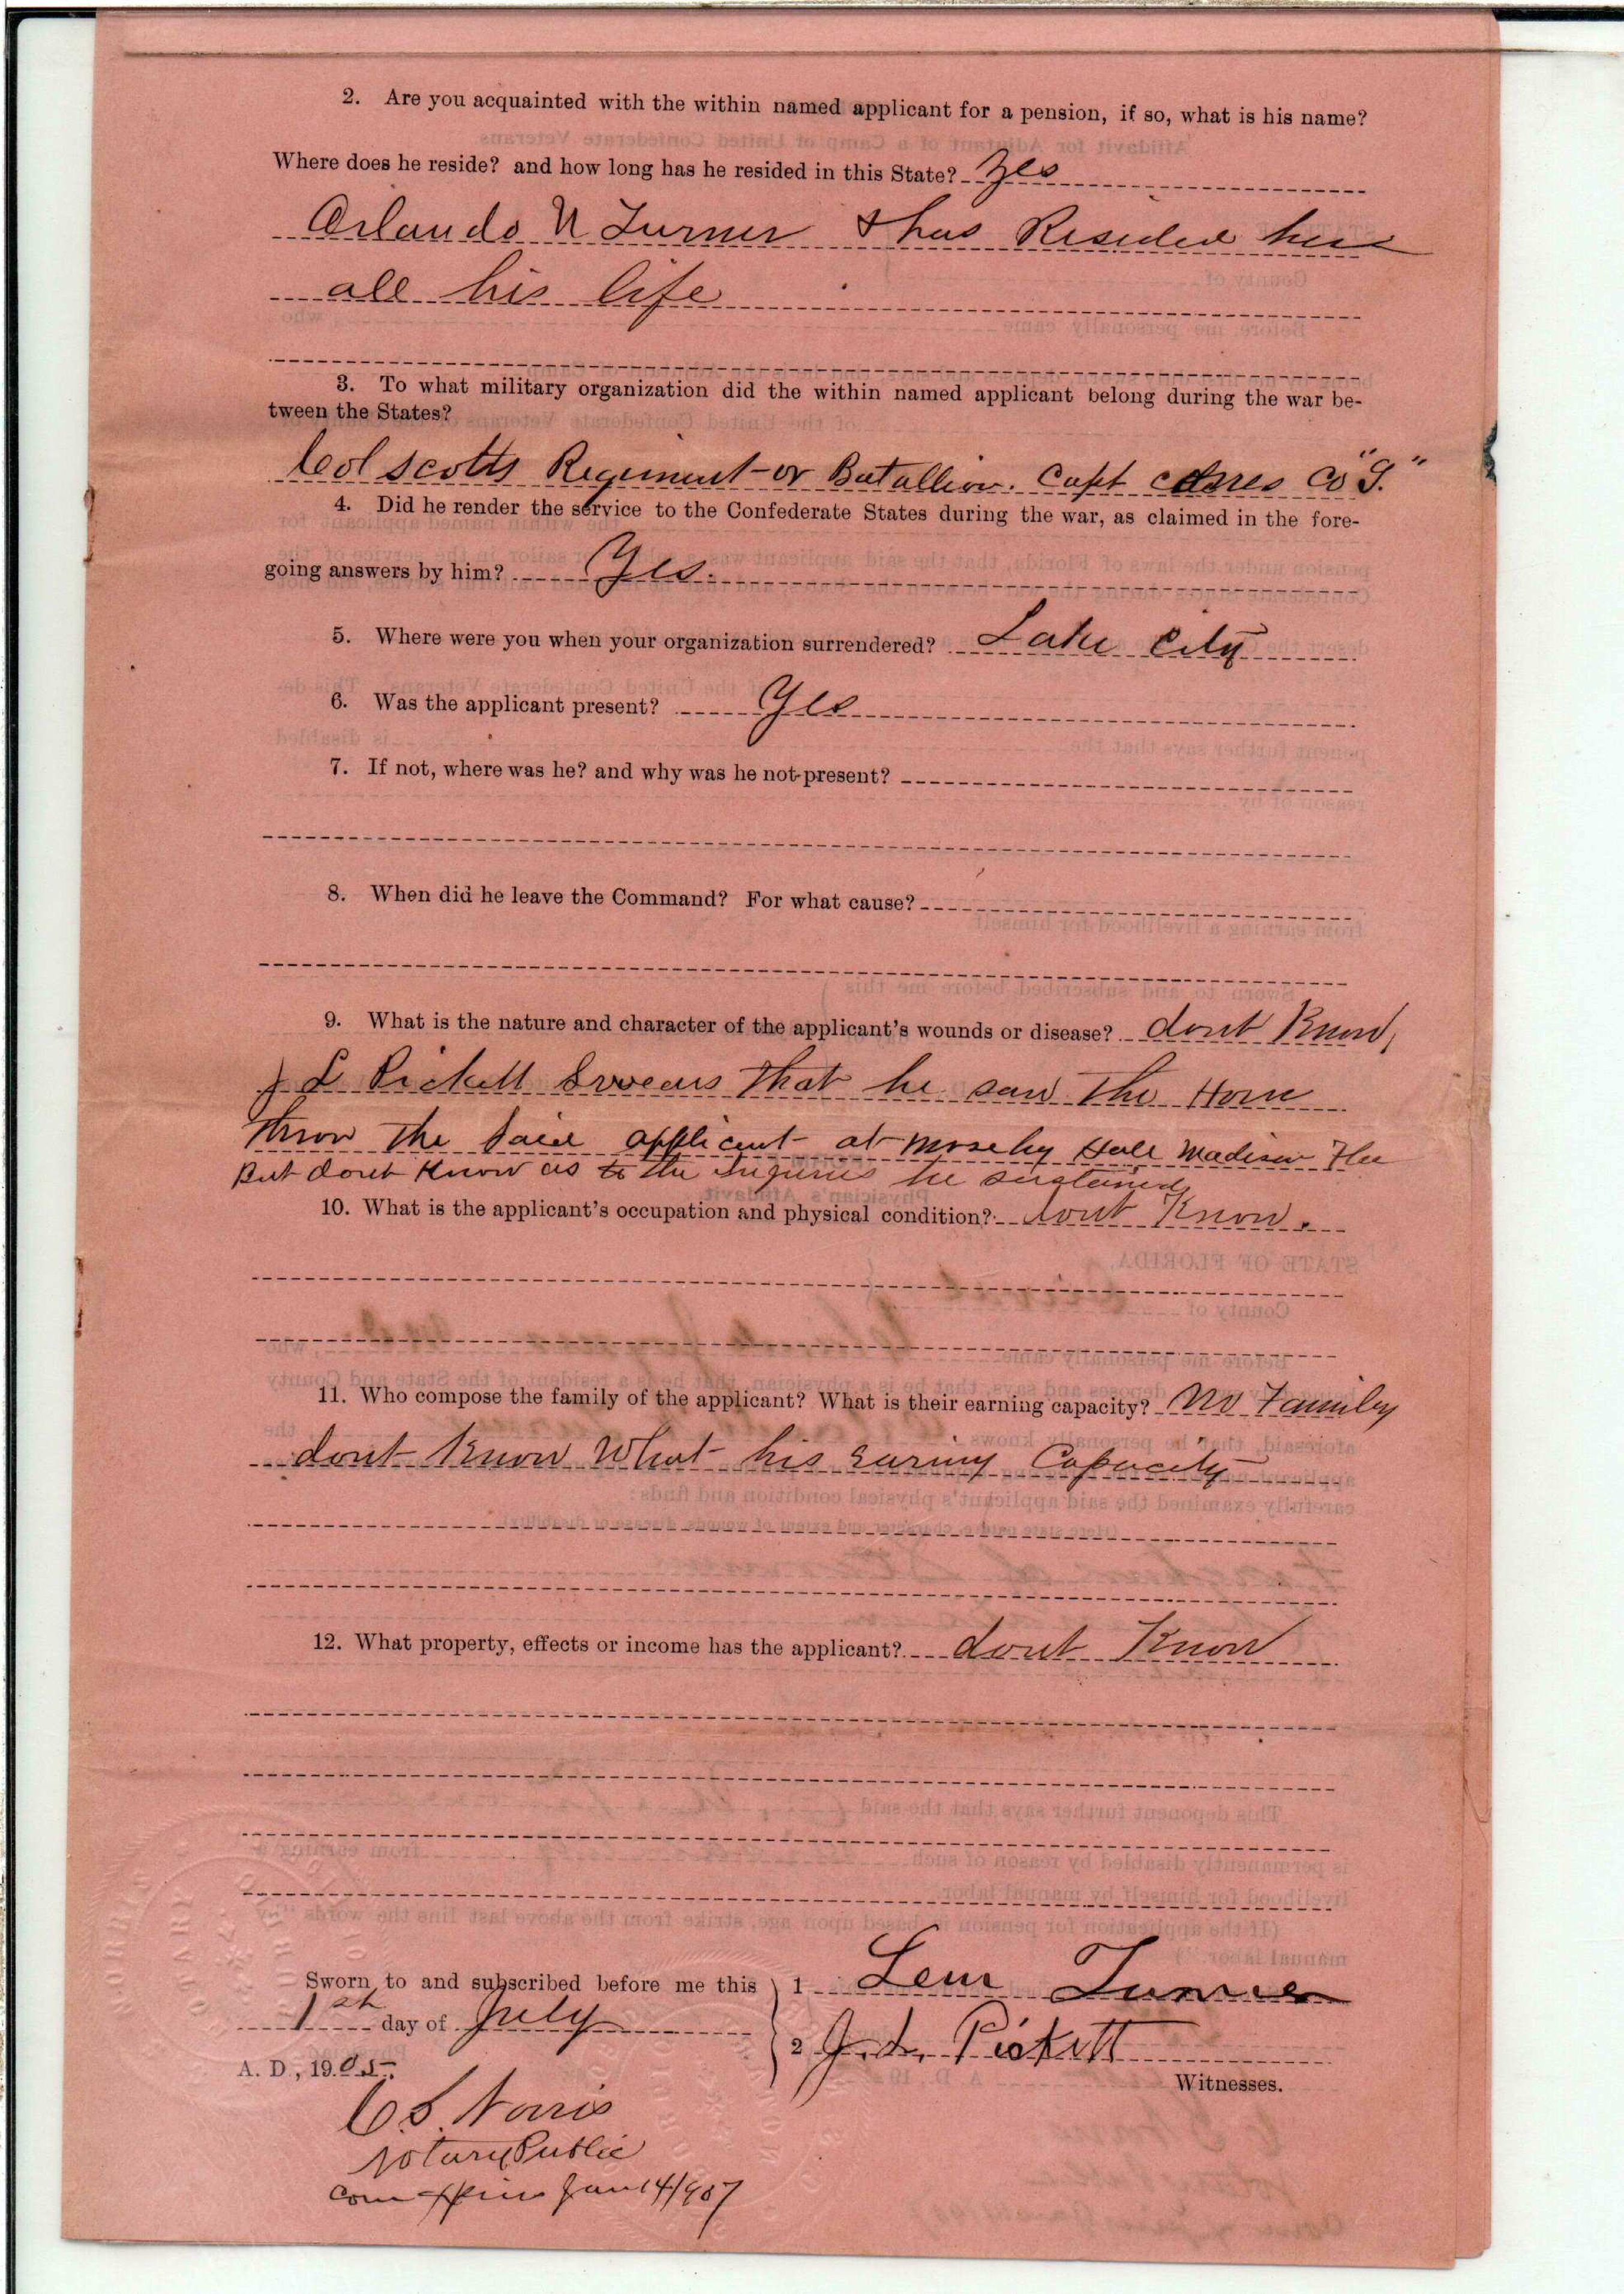 2. Are you acquainted with the within named applicant for a pension, if so, what is his name?
Where does he reside? and how long has he resided in this State? Yes
Orlando N Turner & has Resided here
all his life
3. To what military organization did the within named applicant belong during the war be-
tween the States?
Col Scotts Regiment or Batallion. Capt Co "G."
4. Did he render the service to the Confederate States during the war, as claimed in the fore-
going answers by him? Yes.
5. Where were you when your organization surrendered? Lake City
6. Was the applicant present? Yes
7. If not, where was he? and why was he not present?
8. When did he leave the Command? For what cause?
9. What is the nature and character of the applicant's wounds or disease? dont Know,
J L Pickett Swears that he saw the Horse
throw the Said applicant at Moseley Hall Madison Fla
But dont Know as to the injuries he sustained
10. What is the applicant's occupation and physical condition? dont Know.
11. Who compose the family of the applicant? What is their earning capacity? No Family
dont Know What his earing Capacity
12. What property, effects or income has the applicant? dont Know
Sworn to and subscribed before me this
1st day of July
A. D., 1905.
1 Lem Turner
2 J. L. Pickett
Witnesses.
C S. Norris
Notary Public
Com Expires Jan 14/1907